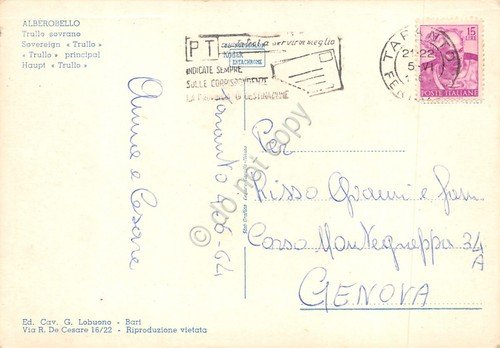 ALBEROBELLO
Trullo sovrano
Sovereign « Trullo »
« Trullo » principal
Haupt « Trullo »
PT
per servirvi meglio
INDICATE SEMPRE
SULLE CORRISPONDENZE
LA PROVINCIA DI DESTINAZIONE
Kodak
EKTACHROME
TARANTO
21-22
5-VI
FERR
15
LIRE
POSTE ITALIANE
Anna e Cesare
Taranto 4-6-64
Per
Risso Gianni e fam
Corso Montegrappa 34
A
GENOVA
do not copy
Ed. Cav. G. Lobuono - Bari
Via R. De Cesare 16/22 - Riproduzione vietata